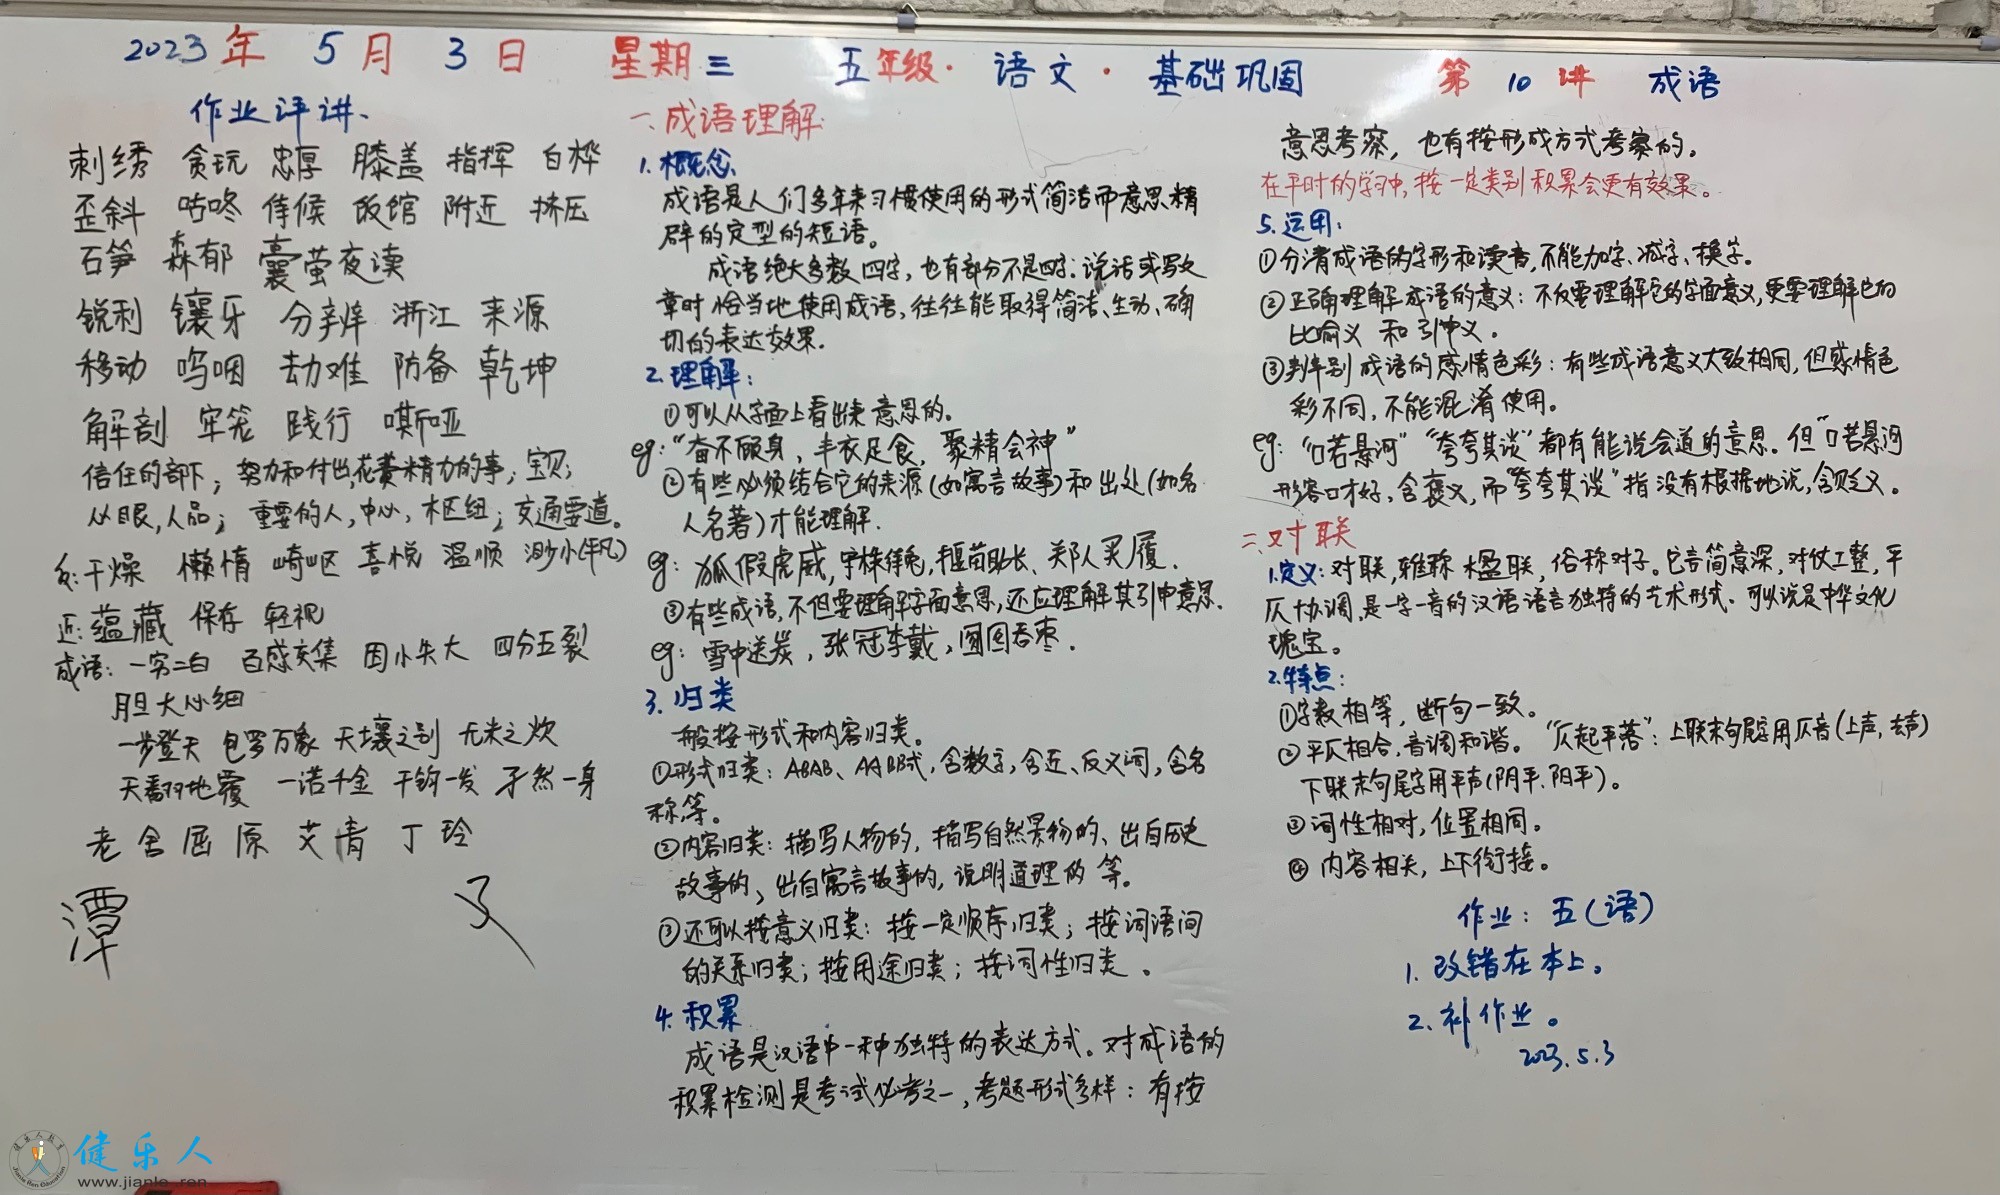 2023年 5月 3日 星期三 五年级·语文·基础巩固 第10讲 成语
作业评讲、
刺绣 贪玩 忠厚 膝盖 指挥 白桦
歪斜 咕咚 侍候 饭馆 附近 挤压
石笋 森郁 囊萤夜读
锐利 镶牙 分辨 浙江 来源
移动 呜咽 劫难 防备 乾坤
解剖 牢笼 践行 嘶哑
信任的部下; 努力和付出,花费精力的事; 宝贝;
心眼,人品; 重要的人,中心, 枢纽; 交通要道。
反:干燥 懒惰 崎岖 喜悦 温顺 渺小(平凡)
近:蕴藏 保存 轻视
成语: 一穷二白 百感交集 因小失大 四分五裂
胆大心细
一步登天 包罗万象 天壤之别 无米之炊
天翻地覆 一诺千金 千钧一发 孑然一身
老舍 屈原 艾青 丁玲
潭
一、成语理解
1.概念、
成语是人们多年来习惯使用的形式简洁而意思精
辟的定型的短语。
成语绝大多数四字,也有部分不是四字;说话或写文
章时恰当地使用成语,往往能取得简洁、生动、确
切的表达效果.
2.理解:
①可以从字面上看出来意思的。
eg:"奋不顾身,丰衣足食,聚精会神"
②有些必须结合它的来源(如寓言故事)和出处(如名
人名著)才能理解.
eg: 狐假虎威,守株待兔,揠苗助长、郑人买履.
③有些成语,不但要理解字面意思,还应理解其引申意思.
eg: 雪中送炭,张冠李戴,囫囵吞枣.
3.归类
一般按形式和内容归类。
①形式归类: ABAB、AABB式,含数字,含近、反义词,含名
称,等。
②内容归类:描写人物的,描写自然景物的、出自历史
故事的、出自寓言故事的,说明道理的等。
③还可以按意义归类:按一定顺序归类;按词语间
的关系归类;按用途归类;按词性归类。
4.积累
成语是汉语中一种独特的表达方式。对成语的
积累检测是考试必考之一,考题形式多样:有按
意思考察,也有按形成方式考察的。
在平时的学习中,按一定类别积累会更有效果。
5.运用:
①分清成语的字形和读音,不能加字、减字、换字。
②正确理解成语的意义:不仅要理解它的字面意义,更要理解它的
比喻义 和引申义.
③判别成语的感情色彩:有些成语意义大致相同,但感情色
彩不同,不能混淆使用。
eg: "口若悬河""夸夸其谈"都有能说会道的意思.但"口若悬河
形容口才好,含褒义,而"夸夸其谈"指没有根据地说,含贬义.
二、对联
1.定义:对联,雅称楹联,俗称对子。它言简意深,对仗工整,平
仄协调,是一字一音的汉语语言独特的艺术形式.可以说是中华文化
瑰宝。
2.特点:
①字数相等,断句一致。
②平仄相合,音调和谐。"仄起平落":上联末句尾字用仄音(上声,去声)
下联末句尾字用平声(阴平.阳平)。
③词性相对,位置相同。
④内容相关,上下衔接。
作业: 五(语)
1.改错在本上。
2.补作业。
2023.5.3
健乐人
www.jianle.ren